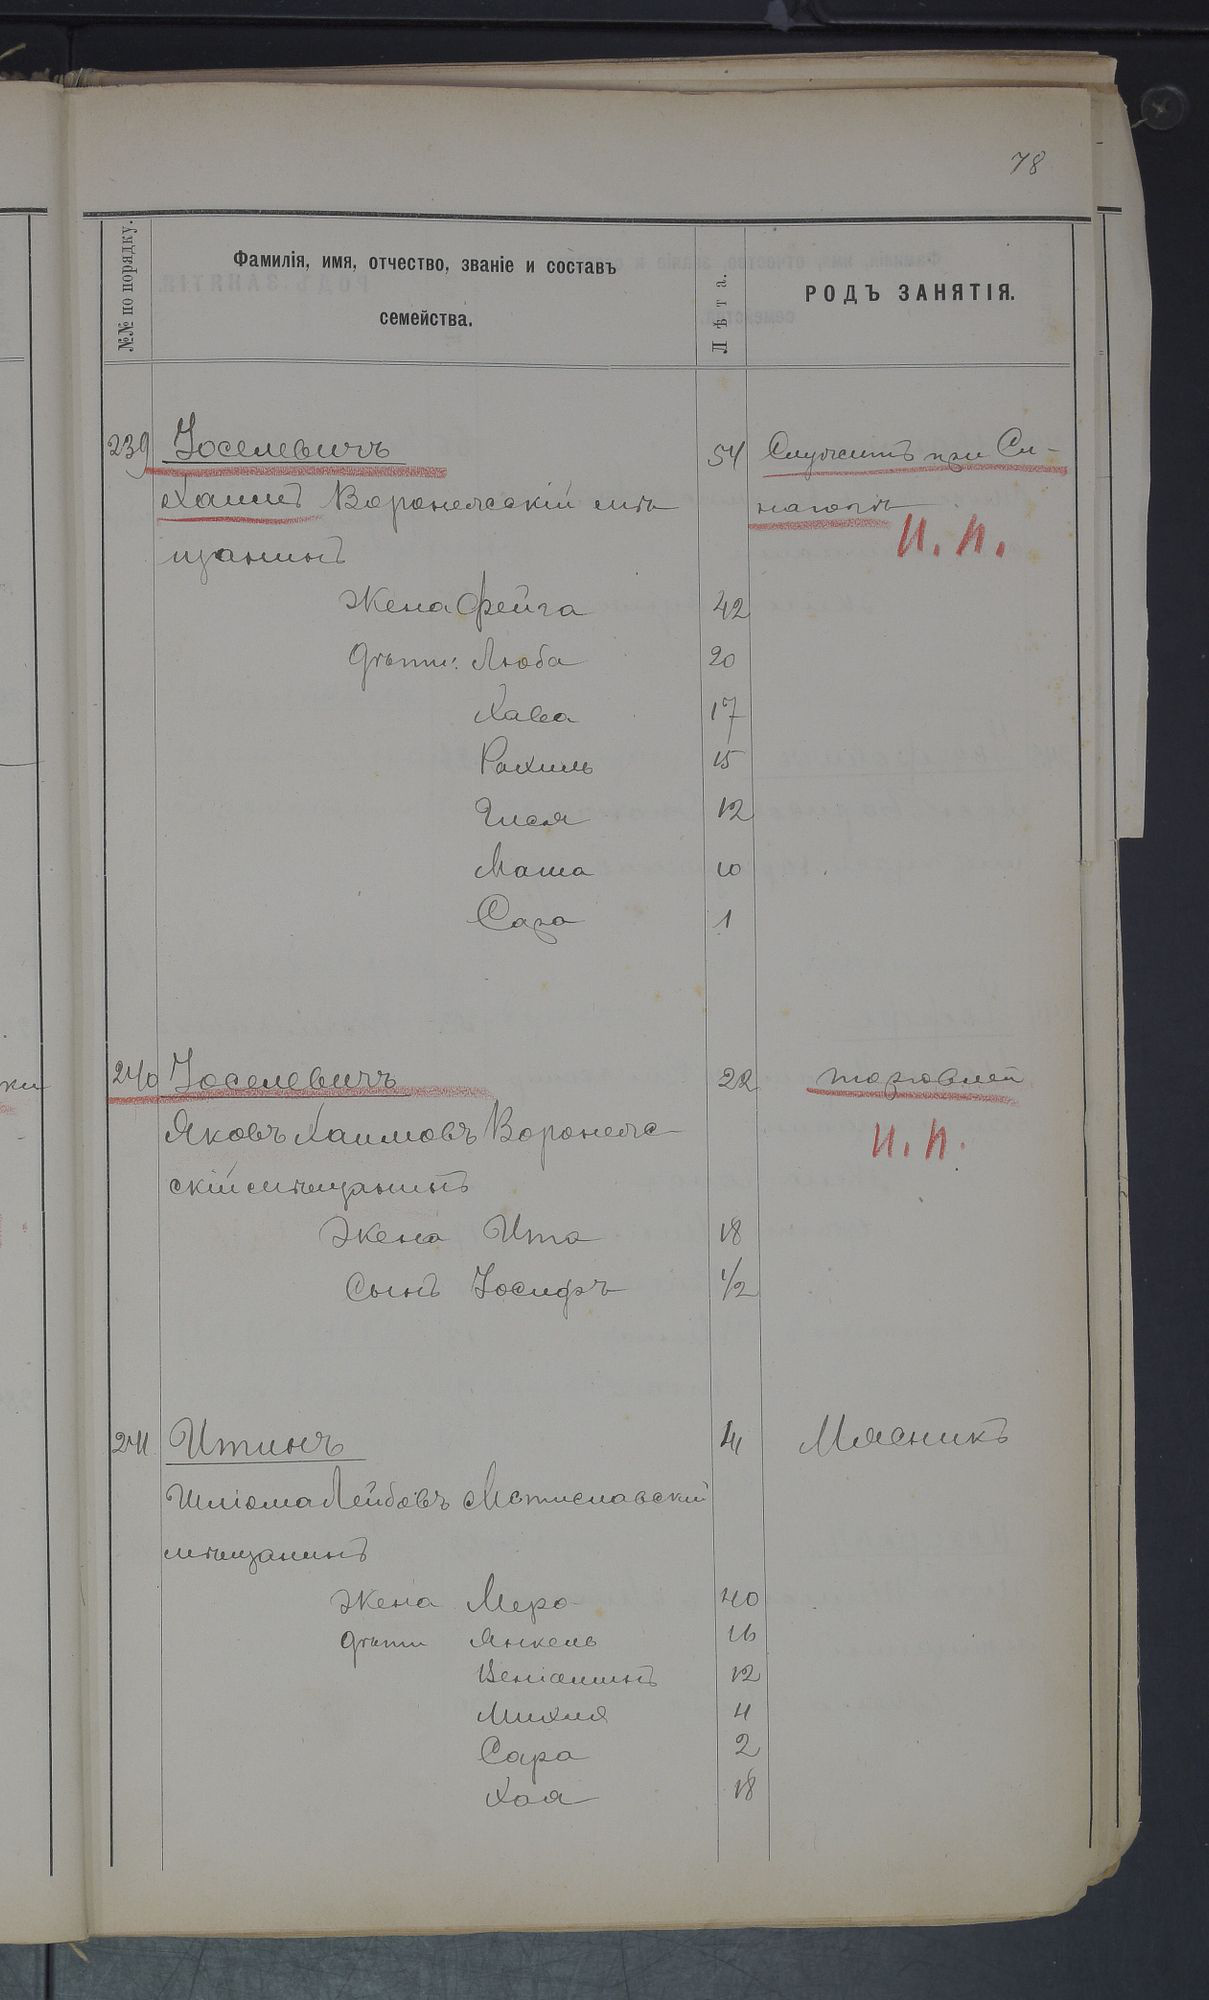 78
№№ по порядку.
Фамилія, имя, отчество, званіе и составъ
семейства.
Лѣта.
РОДЪ ЗАНЯТІЯ.
239 Іоселевичъ 54 Служитъ при Си-
Хаимъ Воронежскій мѣ нагогѣ
щанинъ И. П.
Жена Фейга 42
Дѣти: Люба 20
Хава 17
Рахиль 15
Гися 12
Маша 10
Сара 1
240 Іоселевичъ 22 торговлей
Яковъ Хаимовъ Воронежс И. П.
скій мѣщанинъ
Жена Ита 18
Сынъ Іосифъ 1/2
241 Итинъ 41 Мясникъ
Шліома Лейбовъ Мстиславскій
мѣщанинъ
Жена Мера 40
дѣти Янкель 16
Веніаминъ 12
Михля 4
Сара 2
Хая 18